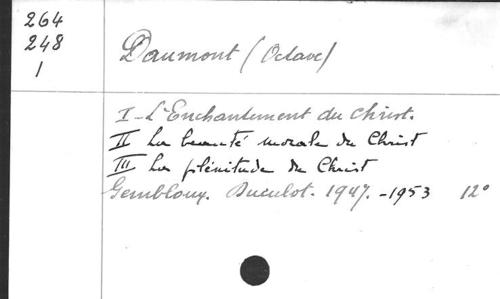 264
248
1
Daumont (Octave)
I - L'Enchantement du Christ.
II La beauté morale du Christ
III La plénitude du Christ
Gembloux. Duculot. 1947. - 1953 12°